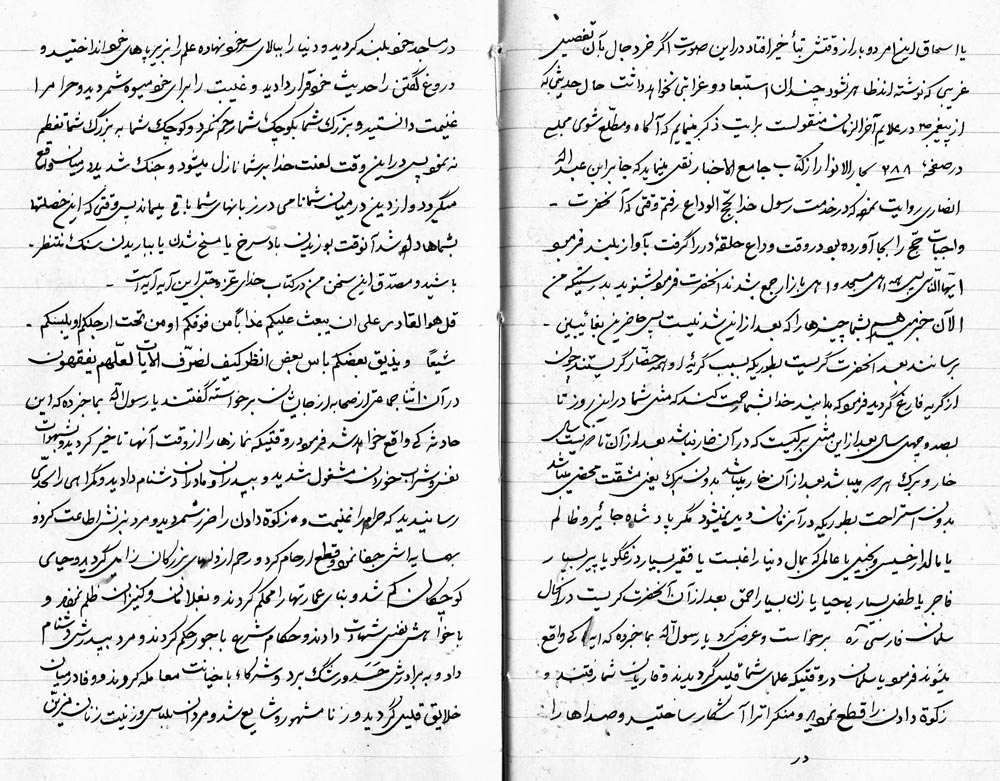 یا اسحاق این امر دو بار از وقتش بتأخیر افتاد در این صورت اگر خر دجال بآن تفصیل
غریبی که نوشته اند ظاهر نشود چندان استبعاد و غرابتی نخواهد داشت حال حدیثی که
از پیغمبر ص در علایم آخر الزمان منقولست برایت ذکر مینمایم که آگاه و مطلع شوی مجلسی
در صفحه ۷۸۸ بحار الانوار از کتاب جامع الاخبار نقل مینماید که جابر ابن عبد الله
انصاری روایت نمود که در خدمت رسول خدا بحج الوداع رفتم وقتی که آنحضرت -
واجبات حج را بجا آورده بود در وقت وداع حلقه در را گرفت بآواز بلند فرمود
ایها الناس پس همه اهل مسجد و اهل بازار جمع شدند آنحضرت فرمود بشنوید بدرستیکه من
الآن خبر میدهم بشما چیزها را که بعد از این شدنیست پس حاضرین بغائبین -
برسانند بعد آنحضرت گریست بطوریکه بسبب گریه او همه حضار گریستند چون
از گریه فارغ گردید فرمود که بدانید خدا بشما رحمت کند که مثل شما در این روز تا
بصد و چهل سال بعد از این مثل برگیست که در آن خار نباشد بعد از آن تا دویست سال
خار و برگ هر دو میباشد بعد از آن خار میباشد بدون برگ یعنی مشقت محض میباشد
بدون استراحت بطوریکه در آنزمان دیده نمیشود مگر پادشاه جائر و ظالم
یا مالدار خسیس و بخیل یا عالم که بمال دنیا راغبست یا فقیر بسیار دروغگو یا پیر بسیار
فاجر یا طفل بسیار بیحیا یا زن بسیار احمق بعد از آن آنحضرت گریست در آنحال
سلمان فارسی ره برخواست و عرض کرد یا رسول الله بما خبر ده که اینها کی واقع
میشوند فرمود یا سلمان در وقتیکه علمای شما قلیل گردیدند و قاریان شما رفتند و
زکوة دادن را قطع نمودید و منکراترا آشکار ساختید و صداها را
در
در مساجد خود بلند کردید و دنیا را ببالای سر خود نهاده علم را زیر پاهای خود انداختید و
دروغ گفتن را حدیث خود قرار دادید و غیبت را برای خود میوه شمردید و حرام را
غنیمت دانستید و بزرگ شما بکوچک شما رحم نکرد و کوچک شما به بزرگ شما تعظیم
نه نمود پس در این وقت لعنت خدا بر شما نازل میشود و جنگ شدید در میان شما واقع
میگردد و از دین در میان شما نامی در زبانهای شما باقی میماند پس وقتی که این خصلتها
بشماها داده شد آنوقت بوزیدن باد سرخ یا مسخ شدن یا بباریدن سنگ منتظر -
باشید و مصدق این سخن من در کتاب خدای عز و جل این آیه است -
قل هو القادر علی ان یبعث علیکم عذاباً من فوقکم او من تحت ارجلکم او یلبسکم -
شیعاً و یذیق بعضکم بأس بعض انظر کیف نصرف الآیات لعلهم یفقهون
در آن اثنا جماعتی از صحابه از جایشان برخواسته گفتند یا رسول الله بما خبر ده که این
حادثه کی واقع خواهد شد فرمود در وقتیکه نمازها را از وقت آنها تاخیر کردید و بشهوات
نفس و شراب خوردن مشغول شدید و بپدران و مادران دشنام دادید و گمراهی را بحدی
رسانیدید که حرام را غنیمت و زکوة دادن را ضرر شمردید و مرد بزنش اطاعت کرد و
بهمسایه اش جفا نمود و قطع ارحام کرد و رحم از دلهای بزرگان زایل گردید و حیای
کوچکان کم شد و بنای عمارتها را محکم کردند و بغلامان و کنیزان ظلم نمودند و
با خواهش نفس شهادت دادند و حکام شرع با جور حکم کردند و مرد بپدرش دشنام
داد و به برادرش حسد و رشگ برد و شرکاء با خیانت معامله کردند و وفا در میان
خلایق قلیل گردید و زنا مشهور و شایع شد و مردان بلباس و زینت زنان مزین